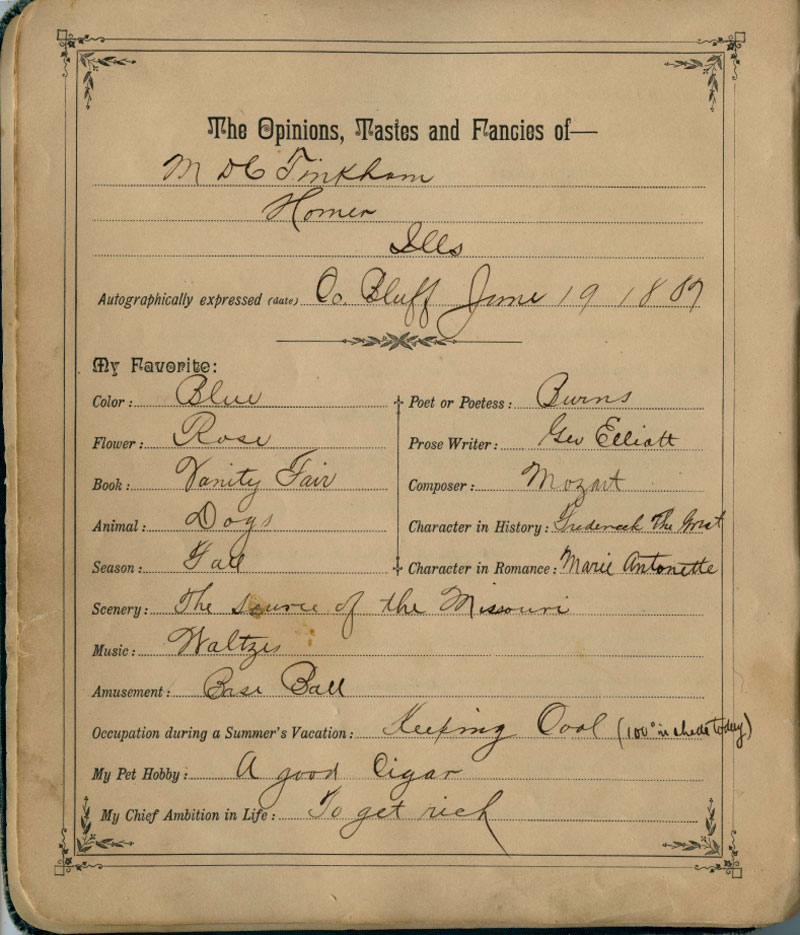 The Opinions, Tastes and Fancies of—
M DC Tinkham
Homer
Ills
Autographically expressed (date) Co. Bluff June 19 1887
My Favorite:
Color: Blue
Flower: Rose
Book: Vanity Fair
Animal: Dogs
Season: Fall
Poet or Poetess: Burns
Prose Writer: Geo Elliott
Composer: Mozart
Character in History: Frederick The Great
Character in Romance: Marie Antonette
Scenery: The source of the Missouri
Music: Waltzes
Amusement: Base Ball
Occupation during a Summer's Vacation: Keeping Cool (100° in shade today)
My Pet Hobby: A good Cigar
My Chief Ambition in Life: To get rich